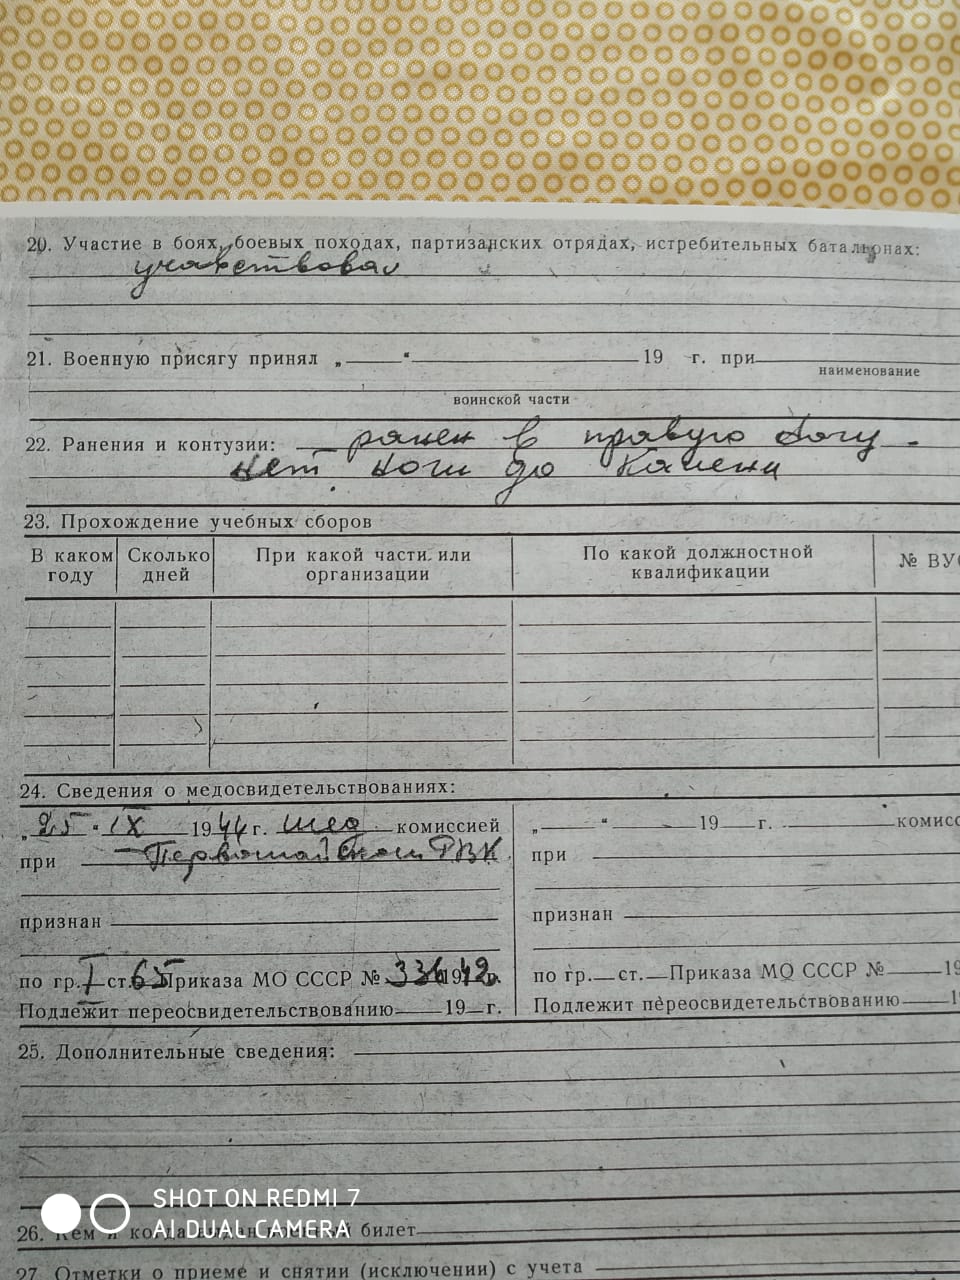 20. Участие в боях, боевых походах, партизанских отрядах, истребительных батальонах:
участвовал
21. Военную присягу принял „ “ 19 г. при
наименование
воинской части
22. Ранения и контузии: ранен в правую ногу.
Нет ноги до колена
23. Прохождение учебных сборов
В каком году Сколько дней При какой части или организации По какой должностной квалификации № ВУС
24. Сведения о медосвидетельствованиях:
„25“ IX 1944 г. комиссией
при Первомайском РВК
признан
по гр. I ст. 65 Приказа МО СССР № 336 1942 г.
Подлежит переосвидетельствованию 19 г.
„ “ 19 г. комисс
при
признан
по гр. ст. Приказа МО СССР № 19
Подлежит переосвидетельствованию 1
25. Дополнительные сведения:
26. Кем и когда выдан военный билет
27. Отметки о приеме и снятии (исключении) с учета
SHOT ON REDMI 7
AI DUAL CAMERA